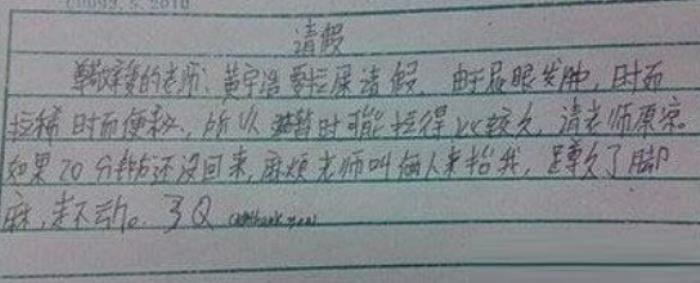 请假
尊敬亲爱的老师：黄宇浩要拉屎请假，由于屁眼发肿，时而
拉稀时而便秘，所以 暂时可能拉得比较久，请老师原凉。
如果20分钟还没回来，麻烦老师叫每人来抬我，蹲久了脚
麻，走不动。3Q